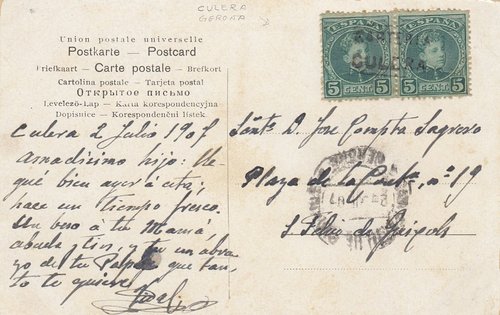 CULERA
GERONA
Union postale universelle
Postkarte — Postcard
Briefkaart — Carte postale — Brefkort
Cartolina postale — Tarjeta postal
Открытое письмо
Levelező-Lap — Karta korespondencyjna
Dopisnice — Korespondenční lístek.
ESPAÑA ESPAÑA
CULERA
5 CENT 5 5 CENT 5
Culera 2 Julio 1907
Amadísimo hijo: Lle
gué bien ayer á esta,
hace un tiempo fresco.
Un beso á tu Mamá,
abuela y tios, y tu un abra
zo de tu Papá que tan
to te quiere
Vidal
D. Jose Sagrero
Plaza de la nº 19
S. Feliu de Guixols
GERONA